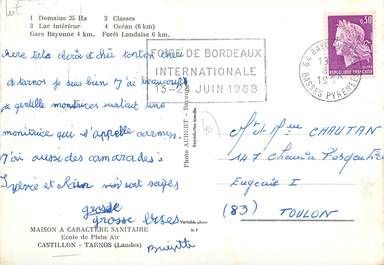 1 Domaine 25 Ha 2 Classes
3 Lac Intérieur 4 Océan (6 km)
Gare Bayonne 4 km. Forêt Landaise 6 km.
chère tata chérie et cher tonton chéri
à tarnos je suis bien j'ai beaucoup
de gentille monitrices surtout une
monitrice que s'appelle
j'ai aussi des camarades.
et sont sages
grosse
grosse bises
Brigitte
MAISON A CARACTÈRE SANITAIRE
Ecole de Plein Air
CASTILLON - TARNOS (Landes)
Photo AUBERT - Bayonne
Reproduction interdite
Véritable photo
FOIRE DE BORDEAUX
INTERNATIONALE
JUIN 1968
BASSES PYRENEES
0,30
REPUBLIQUE FRANÇAISE
Mr et Mme CHAUTAN
147 Chemin
Eugénie I
(83) TOULON